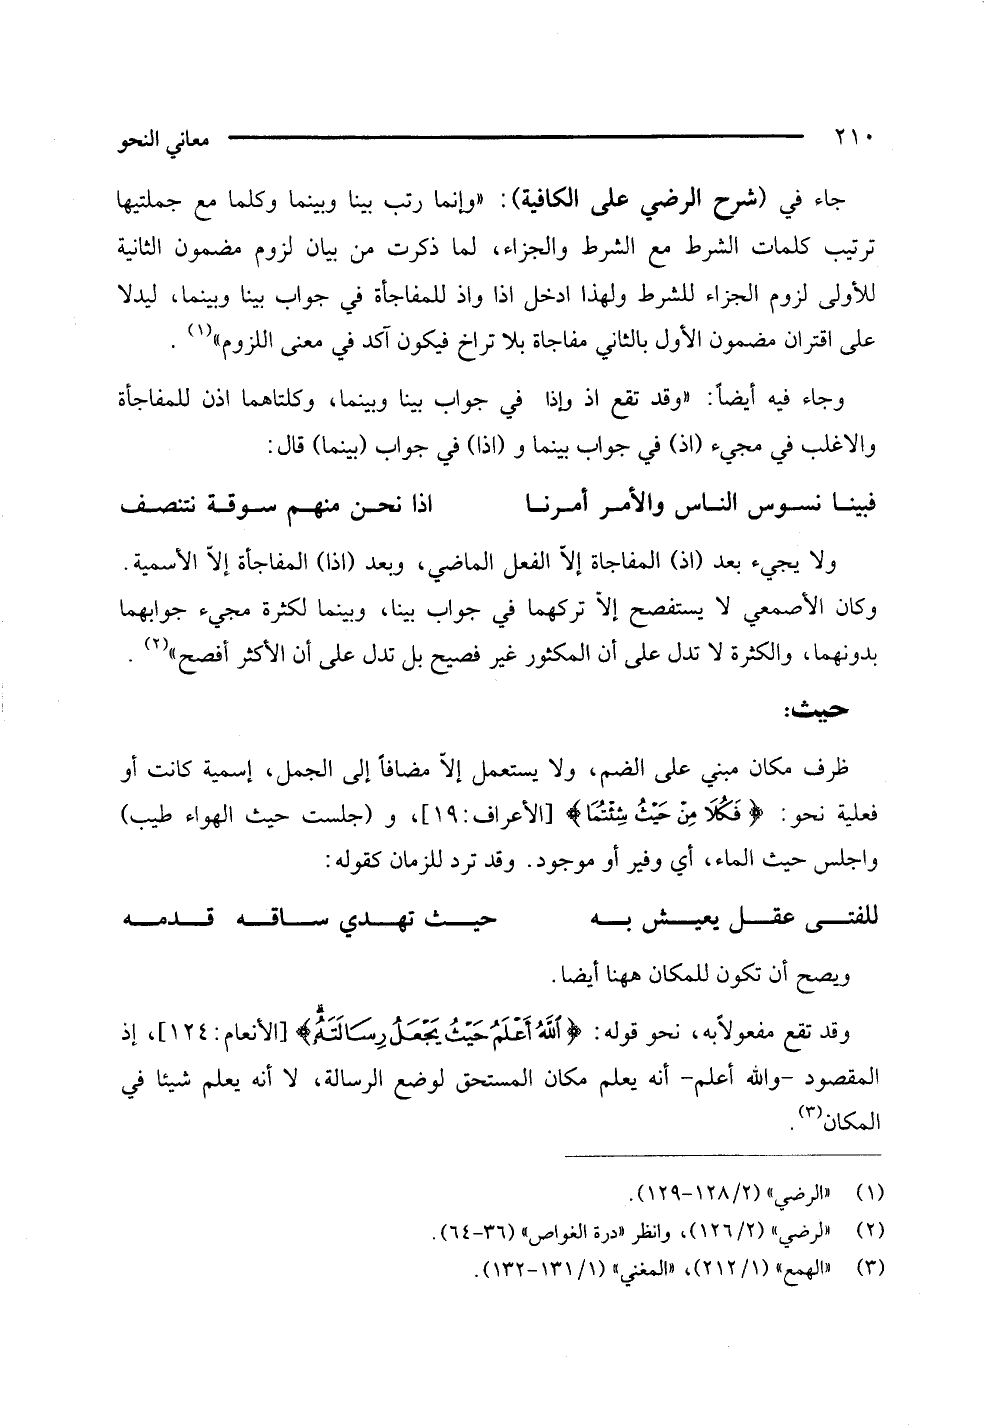 ٢١٠ معاني النحو
جاء في (شرح الرضي على الكافية): «وإنما رتب بينا وبينما وكلما مع جملتيها
ترتيب كلمات الشرط مع الشرط والجزاء، لما ذكرت من بيان لزوم مضمون الثانية
للأولى لزوم الجزاء للشرط ولهذا ادخل اذا واذ للمفاجأة في جواب بينا وبينما، ليدلا
على اقتران مضمون الأول بالثاني مفاجاة بلا تراخ فيكون آكد في معنى اللزوم»(١) .
وجاء فيه أيضاً: «وقد تقع اذ وإذا في جواب بينا وبينما، وكلتاهما اذن للمفاجأة
والاغلب في مجيء (اذ) في جواب بينما و (اذا) في جواب (بينما) قال:
فبينـا نسـوس النـاس والأمـر أمـرنـا اذا نحـن منهـم سـوقـة نتنصـف
ولا يجيء بعد (اذ) المفاجاة إلاّ الفعل الماضي، وبعد (اذا) المفاجأة إلاّ الأسمية.
وكان الأصمعي لا يستفصح إلاّ تركهما في جواب بينا، وبينما لكثرة مجيء جوابهما
بدونهما، والكثرة لا تدل على أن المكثور غير فصيح بل تدل على أن الأكثر أفصح»(٢) .
حيث:
ظرف مكان مبني على الضم، ولا يستعمل إلاّ مضافاً إلى الجمل، إسمية كانت أو
فعلية نحو: ﴿فَكُلَا مِنْ حَيْثُ شِئْتُمَا﴾ [الأعراف:١٩]، و (جلست حيث الهواء طيب)
واجلس حيث الماء، أي وفير أو موجود. وقد ترد للزمان كقوله:
للفتـى عقـل يعيـش بـه حيـث تهـدي سـاقـه قـدمـه
ويصح أن تكون للمكان ههنا أيضا.
وقد تقع مفعولاًبه، نحو قوله: ﴿ٱللَّهُ أَعْلَمُ حَيْثُ يَجْعَلُ رِسَالَتَهُۥ﴾ [الأنعام:١٢٤]، إذ
المقصود -والله أعلم- أنه يعلم مكان المستحق لوضع الرسالة، لا أنه يعلم شيئا في
المكان(٣).
(١) «الرضي» (١٢٨/٢-١٢٩).
(٢) «لرضي» (١٢٦/٢)، وانظر «درة الغواص» (٣٦-٦٤).
(٣) «الهمع» (٢١٢/١)، «المغني» (١٣١/١-١٣٢).